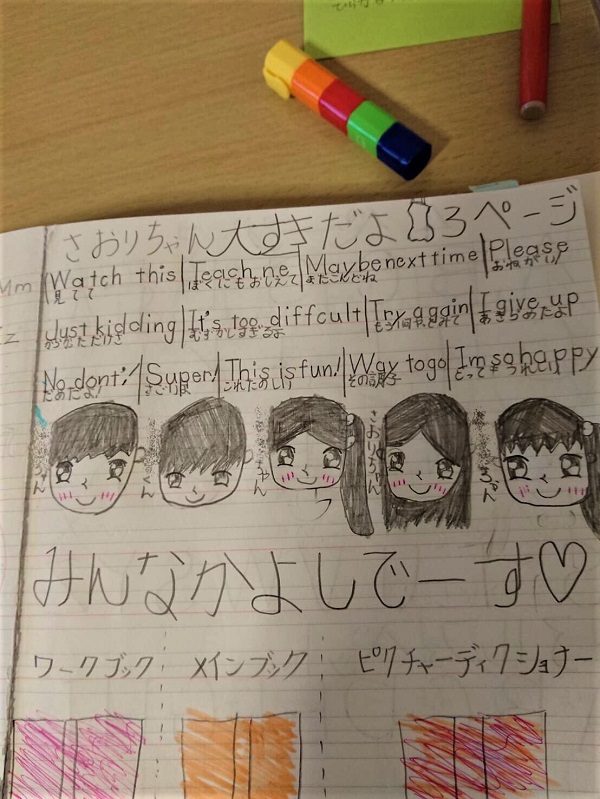 さおりちゃん大すきだよ 3ページ
Mm Watch this Teach ne Maybe next time Please
見てて ぼくにもおしえて またこんどね おねがい
z Just kidding It's too diffcult Try aggin I give up
むずかしすぎるよ あきらめたよ
No, dont! Super! This is fun! Way to go Im so happy
だめだよ! これたのしい その調子
ちゃん くん ちゃん さおりちゃん ちゃん
みんななかよしでーす♡
ワークブック メインブック ピクチャーディクショナー